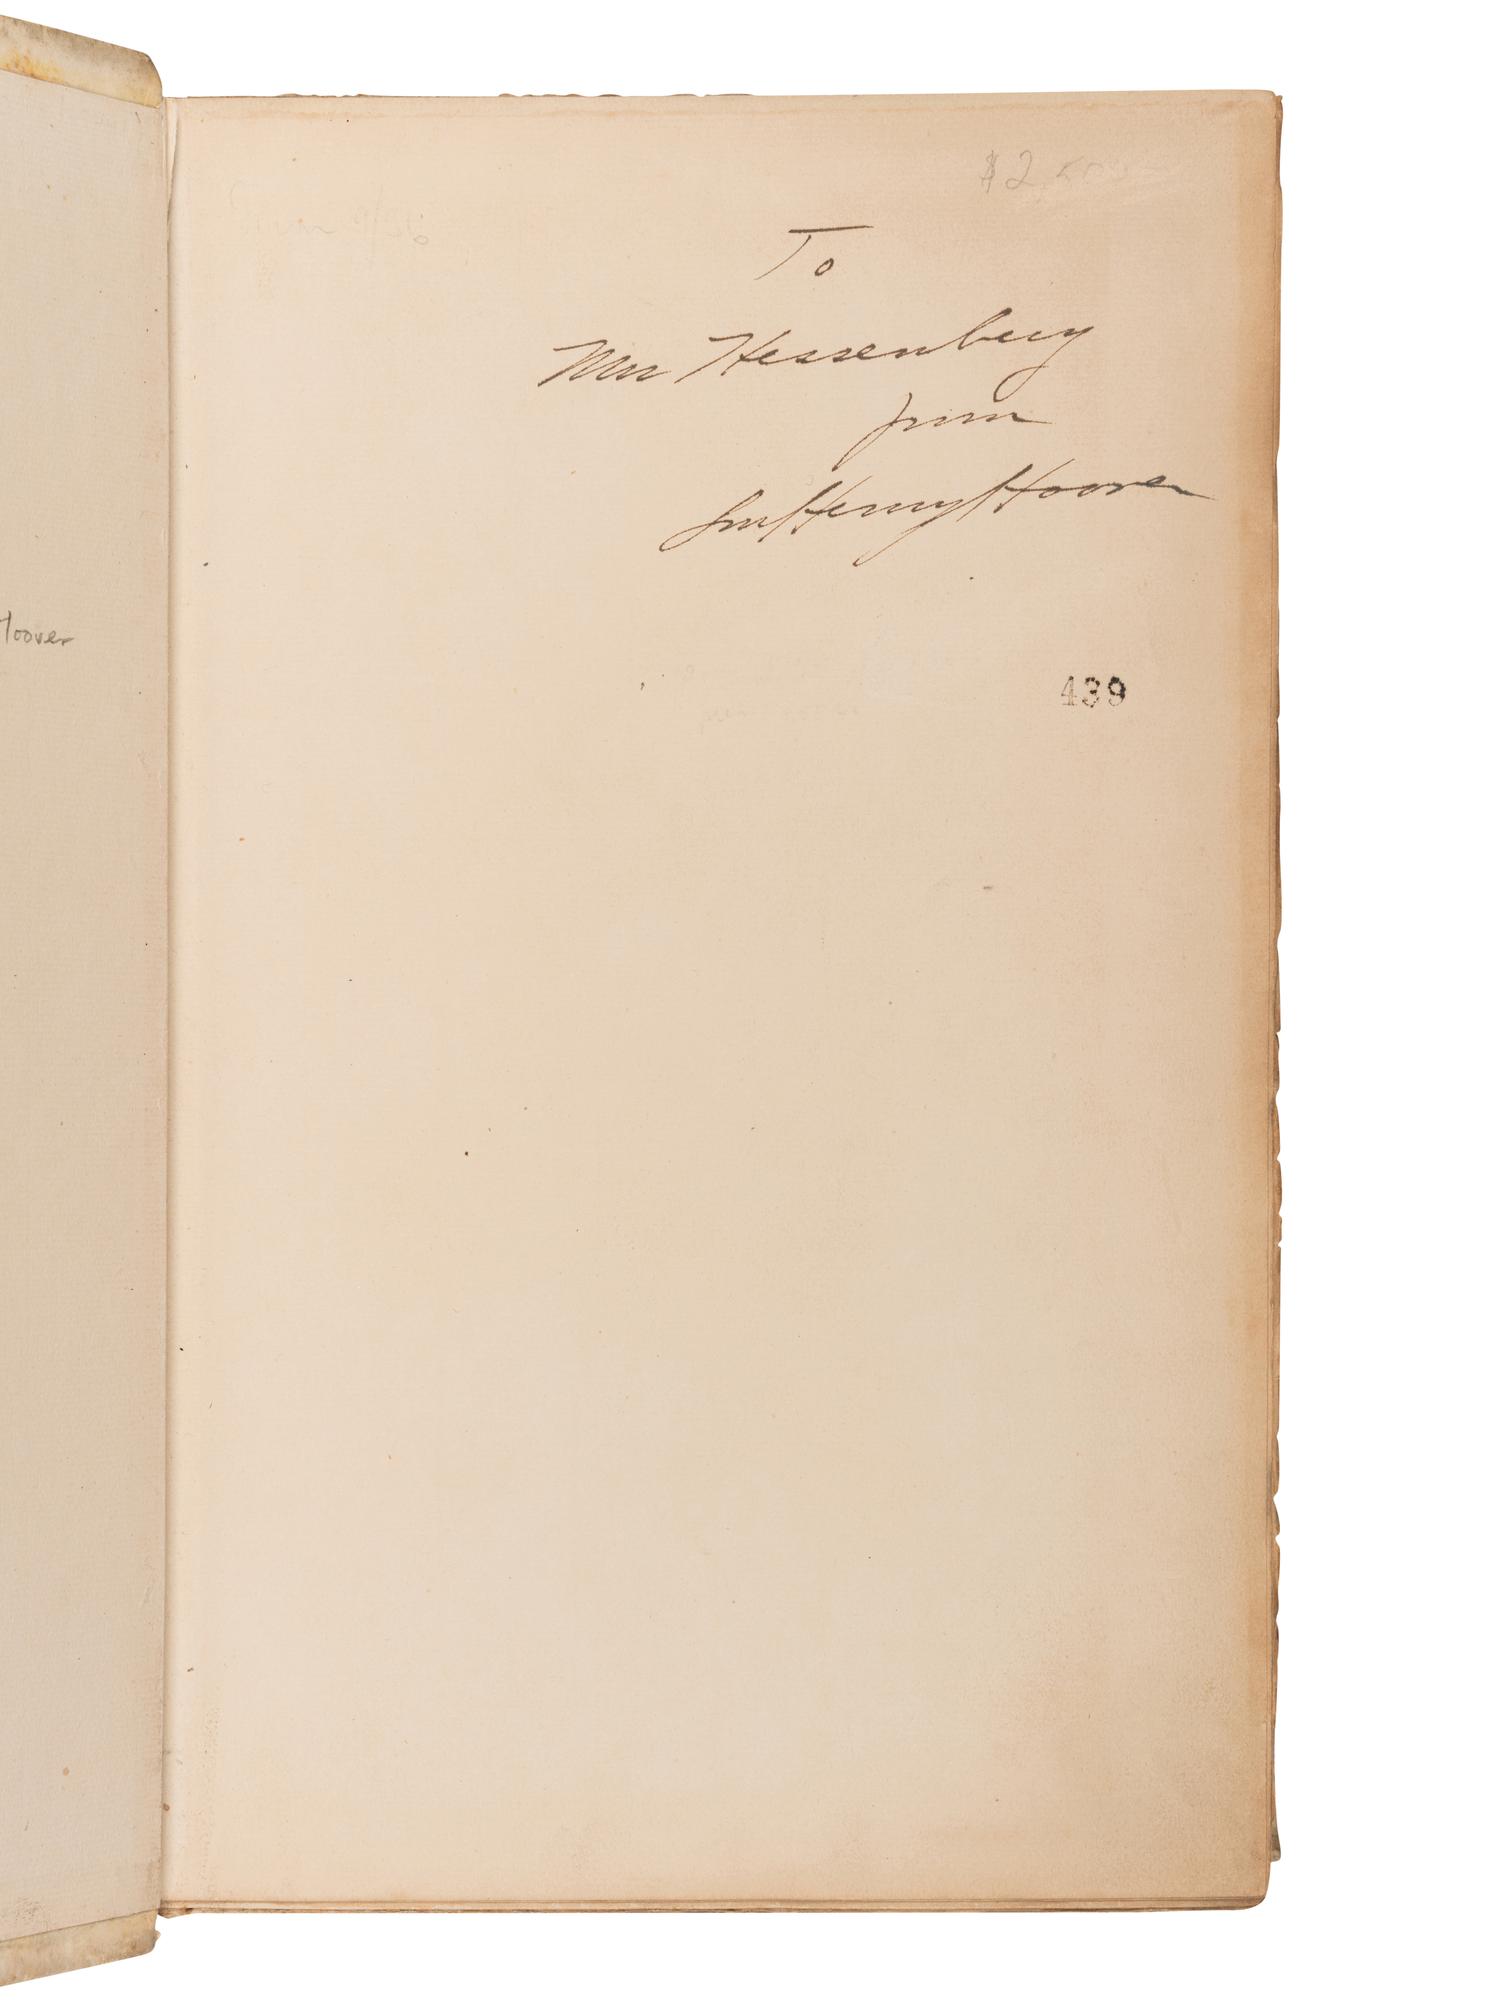 $2,500
To
Mrs Hessenberg
from
Lou Henry Hoover
Hoover
439